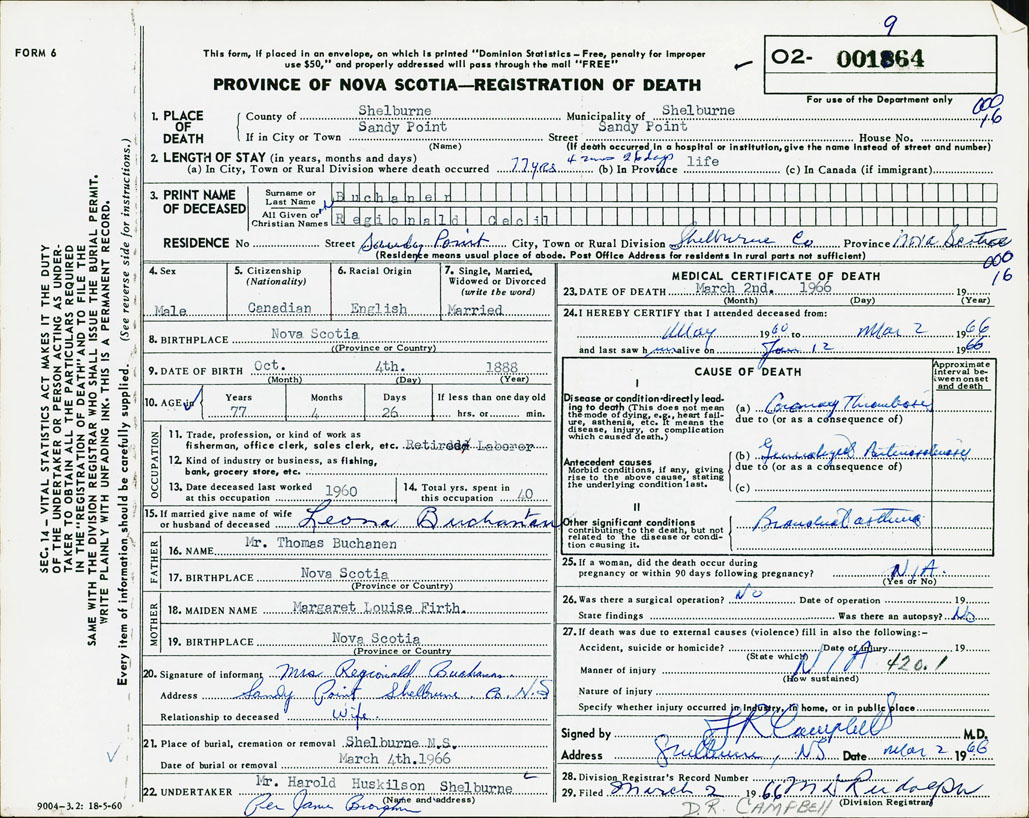 9
FORM 6
This form, if placed in an envelope, on which is printed "Dominion Statistics – Free, penalty for improper
use $50," and properly addressed will pass through the mail "FREE"
O2- 001864
For use of the Department only
PROVINCE OF NOVA SCOTIA—REGISTRATION OF DEATH
000
16
1. PLACE OF DEATH
County of Shelburne Municipality of Shelburne
If in City or Town Sandy Point Street Sandy Point House No.
(Name) (If death occurred in a hospital or institution, give the name instead of street and number)
2. LENGTH OF STAY (in years, months and days)
(a) In City, Town or Rural Division where death occurred 77yrs 4 mos 26 days (b) In Province life (c) In Canada (if immigrant)
3. PRINT NAME OF DECEASED
Surname or Last Name Buchanen
All Given or Christian Names Regionald Cecil
RESIDENCE No Street Sandy Point City, Town or Rural Division Shelburne Co Province Nova Scotia
(Residence means usual place of abode. Post Office Address for residents in rural parts not sufficient)
000
16
4. Sex
Male
5. Citizenship
(Nationality)
Canadian
6. Racial Origin
English
7. Single, Married,
Widowed or Divorced
(write the word)
Married
8. BIRTHPLACE Nova Scotia
((Province or Country)
9. DATE OF BIRTH Oct. 4th. 1888
(Month) (Day) (Year)
10. AGE in
Years 77
Months 4
Days 26
If less than one day old
hrs. or min.
OCCUPATION
11. Trade, profession, or kind of work as
fisherman, office clerk, sales clerk, etc. Retired Laborer
12. Kind of industry or business, as fishing,
bank, grocery store, etc.
13. Date deceased last worked
at this occupation 1960
14. Total yrs. spent in
this occupation 40
15. If married give name of wife
or husband of deceased Leona Buchanan
FATHER
16. NAME Mr. Thomas Buchanen
17. BIRTHPLACE Nova Scotia
(Province or Country)
MOTHER
18. MAIDEN NAME Margaret Louise Firth.
19. BIRTHPLACE Nova Scotia
(Province or Country)
20. Signature of informant Mrs Reginald Buchanan
Address Sandy Point Shelburne Co N.S
Relationship to deceased Wife.
21. Place of burial, cremation or removal Shelburne N.S.
Date of burial or removal March 4th.1966
22. UNDERTAKER Mr. Harold Huskilson Shelburne
(Name and address)
Per
9004–3.2: 18-5-60
MEDICAL CERTIFICATE OF DEATH
23. DATE OF DEATH March 2nd. 1966 19
(Month) (Day) (Year)
24. I HEREBY CERTIFY that I attended deceased from:
May 1960 to Mar 2 1966
and last saw him alive on Jan 12 1966
CAUSE OF DEATH
Approximate
interval be-
tween onset
and death
I
Disease or condition-directly lead-
ing to death (This does not mean
the mode of dying, e.g., heart fail-
ure, asthenia, etc. It means the
disease, injury, or complication
which caused death.)
(a) Coronary Thrombosis
due to (or as a consequence of)
Antecedent causes
Morbid conditions, if any, giving
rise to the above cause, stating
the underlying condition last.
(b) Generalized Arteriosclerosis
due to (or as a consequence of)
(c)
II
Other significant conditions
contributing to the death, but not
related to the disease or condi-
tion causing it.
Bronchial asthma
25. If a woman, did the death occur during
pregnancy or within 90 days following pregnancy? N/A.
(Yes or No)
26. Was there a surgical operation? No Date of operation 19
State findings Was there an autopsy? No
27. If death was due to external causes (violence) fill in also the following:–
Accident, suicide or homicide? Date of injury 19
(State which)
Manner of injury N/A 420.1
(How sustained)
Nature of injury
Specify whether injury occurred in industry, in home, or in public place
Signed by F R Campbell M.D.
Address Shelburne, NS Date Mar 2 1966
28. Division Registrar's Record Number
29. Filed March 2 1966 M D Rudolph
(Division Registrar)
D.R. CAMPBELL
SEC. 14 – VITAL STATISTICS ACT MAKES IT THE DUTY
OF THE UNDERTAKER OR PERSON ACTING AS UNDER-
TAKER TO OBTAIN ALL THE PARTICULARS REQUIRED
IN THE "REGISTRATION OF DEATH" AND TO FILE THE
SAME WITH THE DIVISION REGISTRAR WHO SHALL ISSUE THE BURIAL PERMIT.
WRITE PLAINLY WITH UNFADING INK. THIS IS A PERMANENT RECORD.
Every item of information should be carefully supplied. (See reverse side for instructions.)